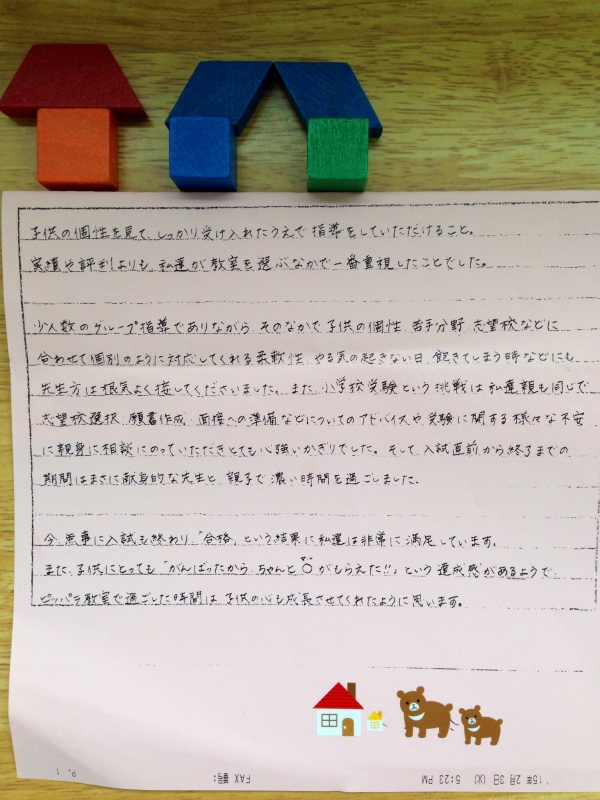 子供の個性を見て、しっかり受け入れたうえで指導をしていただけること。
実績や評判よりも、私達が教室を選ぶなかで一番重視したことでした。
少人数のグループ指導でありながら、そのなかで子供の個性、苦手分野、志望校などに
合わせて個別のように対応してくれる柔軟性、やる気の起きない日、飽きてしまう時などにも
先生方は根気よく接してくださいました。また、小学校受験という挑戦は私達親も同じで
志望校選択、願書作成、面接への準備などについてのアドバイスや受験に関する様々な不安
に親身に相談にのっていただきとても心強いかぎりでした。そして、入試直前から終了までの
期間はまさに献身的な先生と、親子で濃い時間を過ごしました。
今、無事に入試も終わり、「合格」という結果に私達は非常に満足しています。
また、子供にとっても「がんばったから、ちゃんと〇がもらえた!!」という達成感があるようで
ピッパラ教室で過ごした時間は、子供の心も成長させてくれたように思います。
'15年 2月 3日 (火) 5:23 PM FAX 番号: P. 1